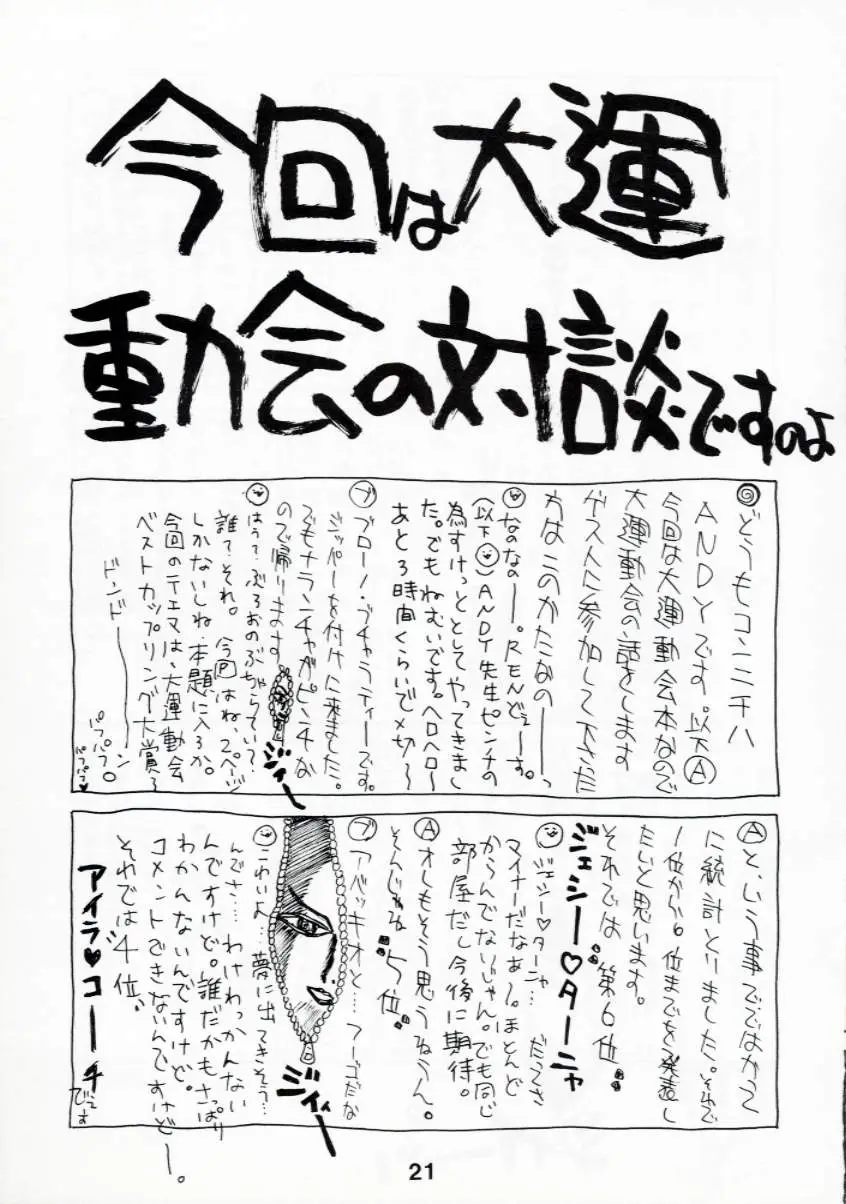 今回は大運
動会の対談ですのよ
どうもコンニチハ
ANDYです。以下Ⓐ
今回は大運動会本なので
大運動会の話をします
ゲストに参加して下さた
方はこのかたなのーーっ
なのなのー。REんどぇーす。
(以下 )ANDY先生ピンチの
為すけっととしてやってきまし
た。でもねむいです。ヘロヘロ〜
あと3時間くらいで〆切〜
ブ ブローノ・ブチャラティーです。
ジッパーを付けに来ました。
でもナランチャがピンチな
ので帰ります
ジィー
はうて、ぶろおのぶちゃらていて
誰て、それ。今回はね、2ページ
しかないしね、本題に入ろか。
今回のテーマは、大運動会
ベストカップリング大賞〜
ドンドーーン
パフパフ。
パフパフ♥
Ⓐ と、いう事でではかて
に統計とりました。それで
1位から6位までを発表し
たいと思います。
それでは、第6位。
ジェシー♡ターニャ
ジェシー♡ターニャ… だってさ
マイナーだなぁ〜。ほとんど
からんでないじゃん。でも同じ
部屋だし今後に期待。
Ⓐ オレもそう思うねうん。
そんじゃね 5位。
ブ アバッキオと…フーゴだな
ジィィー
こわいよ…夢に出てきそう…
んでさ…わけわっかんない
んですけど。誰だかもさっぱり
わかんないんですけど。
コメントできないんですけどー。
それでは4位
アイラ♥コーチ
です
21